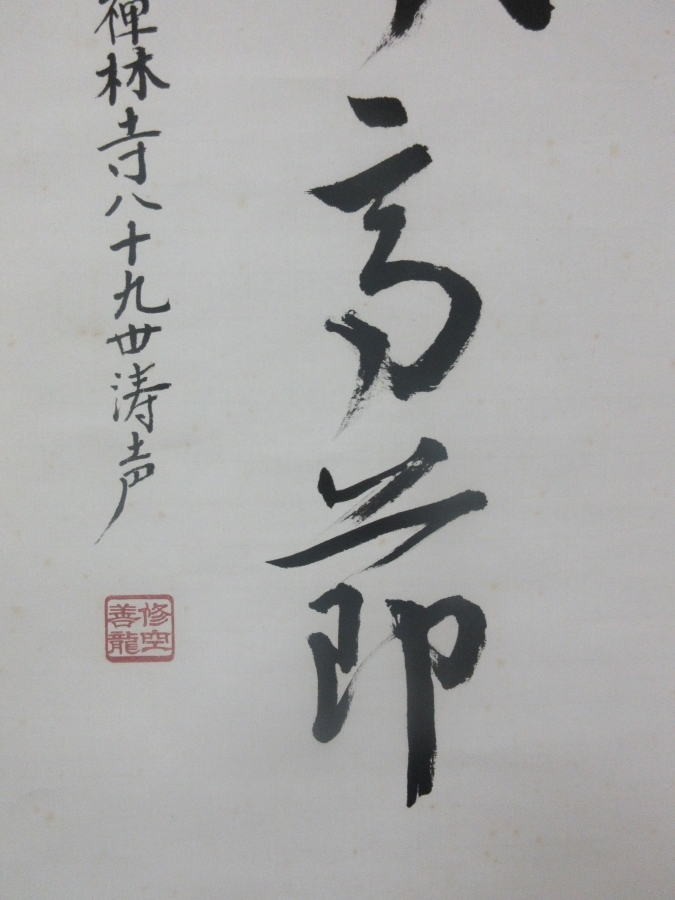 高節
禅林寺八十九世涛声
修空
善龍